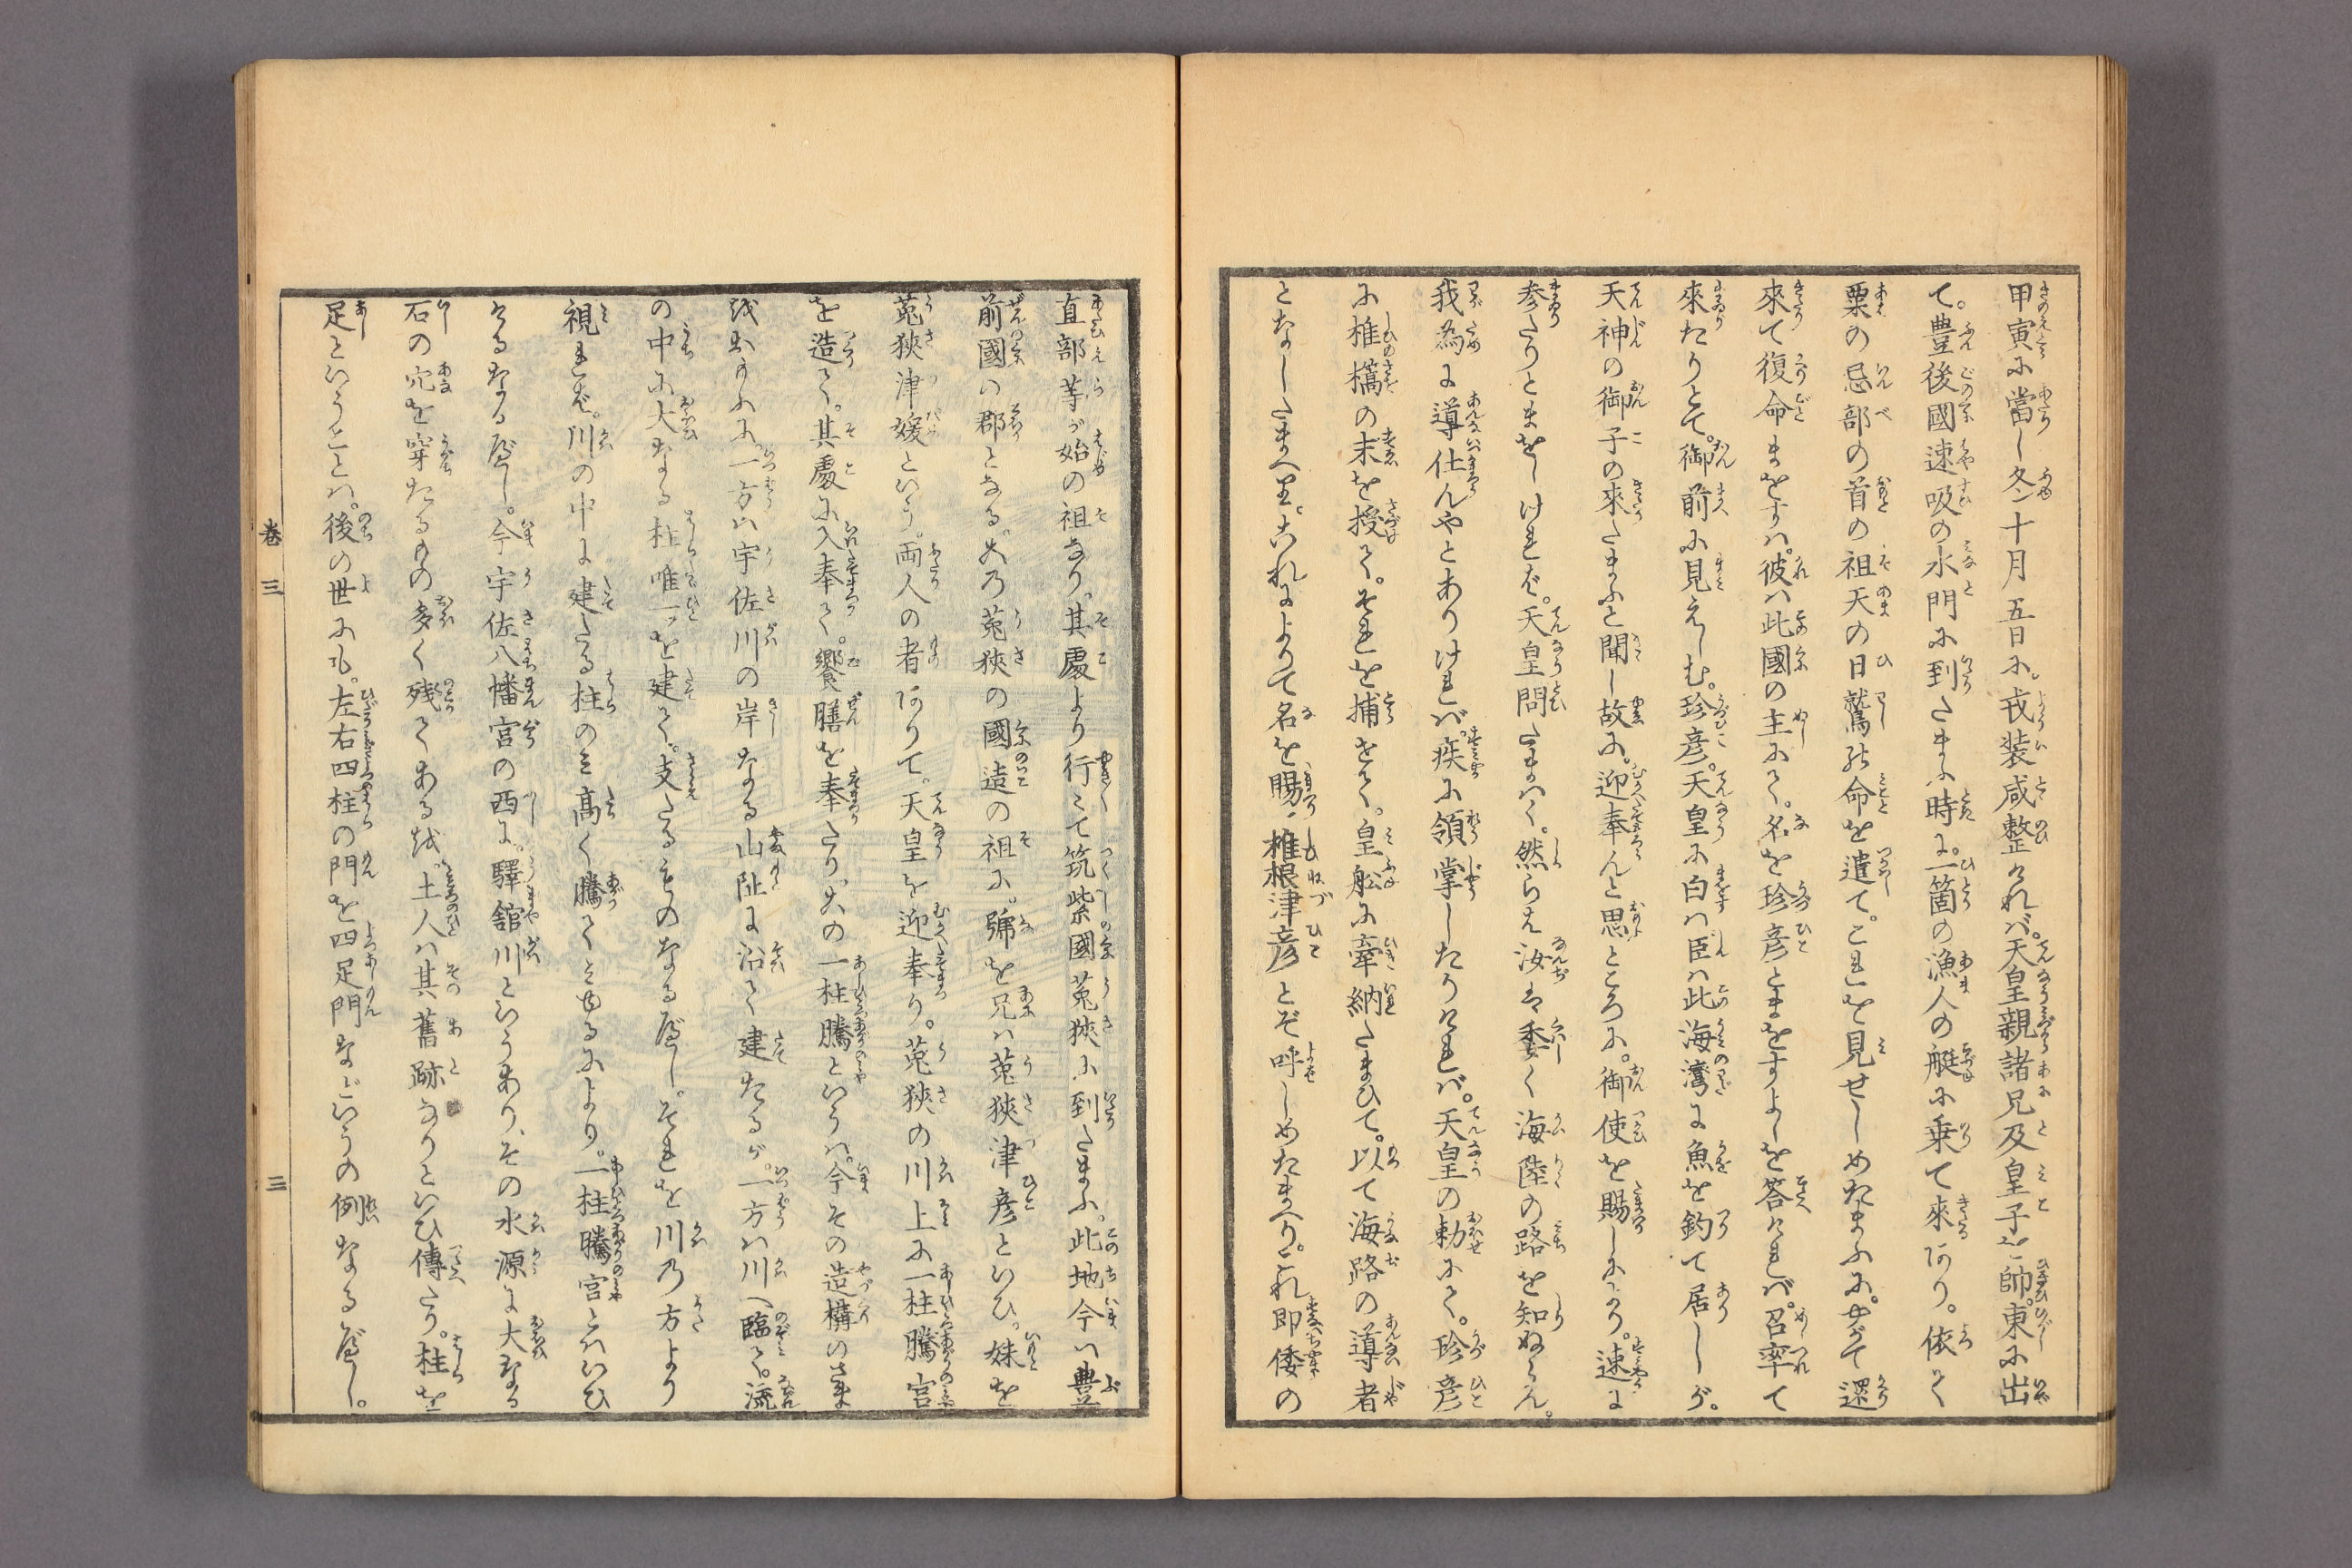 甲寅に當し冬十月五日に。戎装咸整けれバ。天皇親諸兄及皇子を帥。東に出
て。豊後國速吸の水門に到たまふ時に。一箇の漁人の艇に乗て來るあり。依て
粟の忌部の首の祖天の日鷲の命を遣て。これを見せしめたまふに。やがて還
來て復命まをすハ。彼ハ此國の主にて。名を珍彦とまをすよしを答けれバ。召率て
來たりとて。御前に見えしむ。珍彦。天皇に白ハ臣ハ此海灣に魚を釣て居しが。
天神の御子の來たまふと聞し故に。迎奉んと思ところに。御使を賜しにより。速に
参たりとまをしけれど。天皇問たまハく。然らえ汝ハ委く海陸の路を知ぬらん。
我為に導仕んやとありけれバ。疾に領掌したりけれバ。天皇の勅にて。珍彦
に椎檇の末を授て。それを捕せて。皇舩に牽納たまひて。以て海路の導者
となしたまへり。これによりて名を賜、椎根津彦とぞ呼しめたまへり。これ即倭の
直部等が始の祖なり。其處より行々て筑紫國菟狹に到たまふ。此地今ハ豊
前國の郡となる。この菟狹の國造の祖に。号を兄ハ菟狹津彦といひ。妹を
菟狹津媛といふ。両人の者ありて。天皇を迎奉り。菟狹の川上に一柱騰宮
を造て。其處に入奉て。饗膳を奉たり。この一柱騰といふハ。今その造構のさま
をおもふに。一方ハ宇佐川の岸なる山阯に沿て建たるが。一方ハ川へ臨て。流
の中に大なる柱唯一を建て。支たるものなるべし。それを川の方より
視れど。川の中に建たる柱のミ高く騰て見ゆるにより。一柱騰宮とハいひ
けるなるべし。今宇佐八幡宮の西に。驛舘川といふあり、その水源に大なる
石の穴を穿たるもの多く残てあるを。土人ハ其舊跡なりといひ傳たり。柱を
足といふことハ。後の世にも。左右四柱の門を四足門などいふの例なるべし。
卷三
三